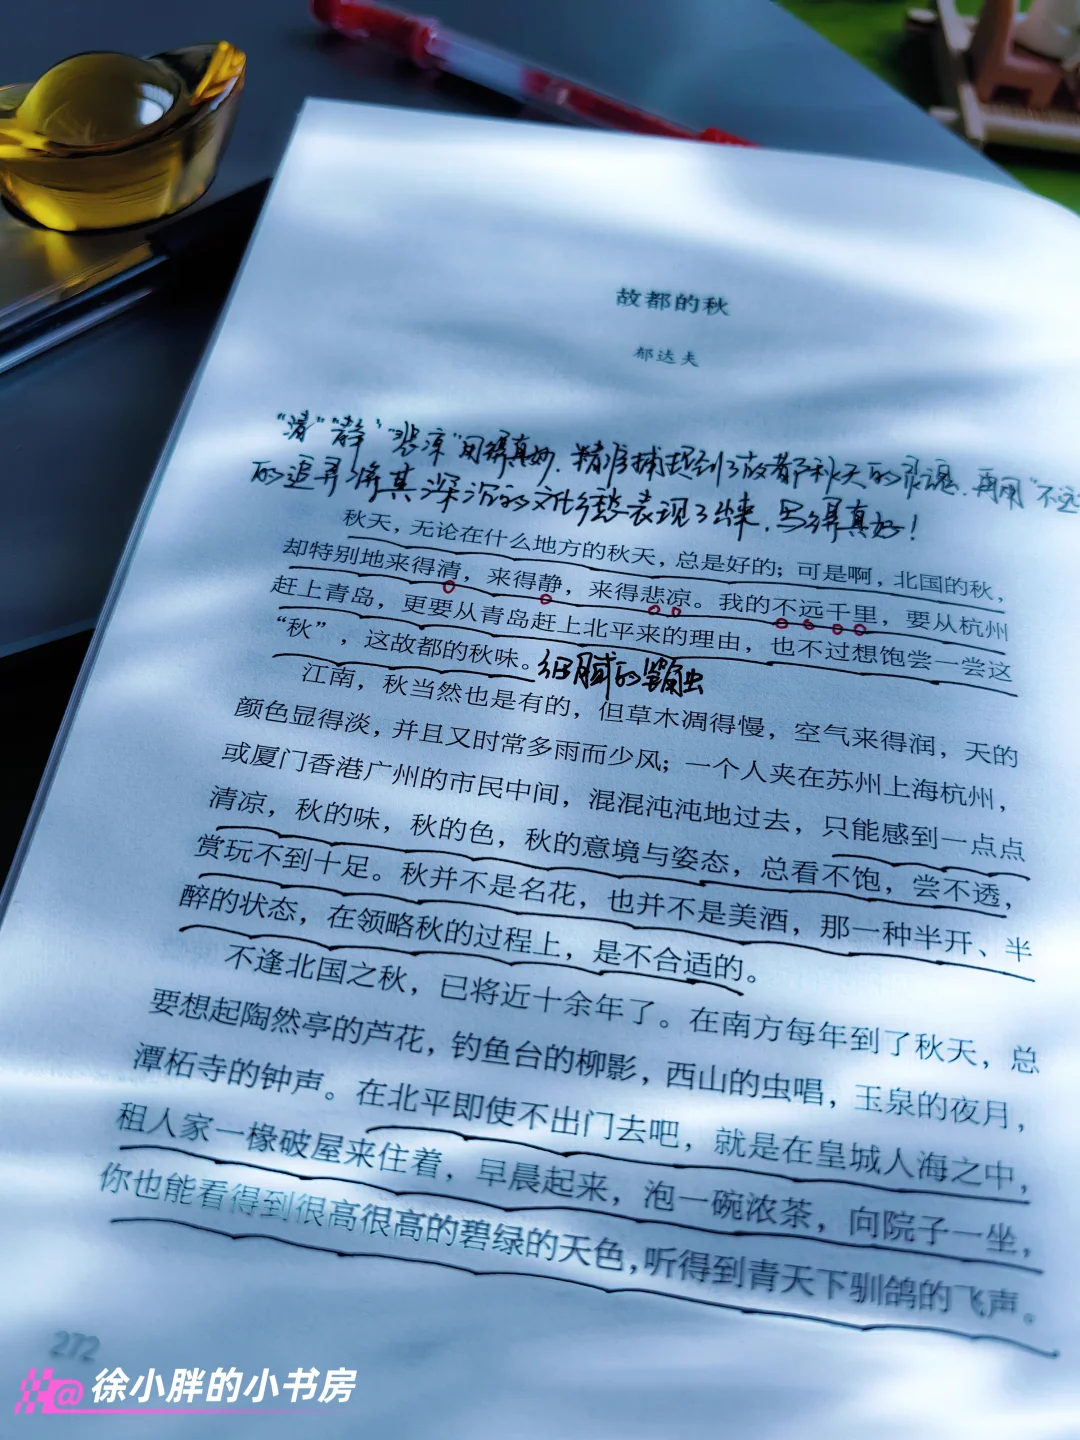 故都的秋
郁达夫
“清”“静”“悲凉”用得真妙，精准捕捉到了故都秋天的灵魂，再用“不远
的追寻将其深沉的文化乡愁表现了出来，写得真好！
秋天，无论在什么地方的秋天，总是好的；可是啊，北国的秋，
却特别地来得清，来得静，来得悲凉。我的不远千里，要从杭州
赶上青岛，更要从青岛赶上北平来的理由，也不过想饱尝一尝这
“秋”，这故都的秋味。细腻的笔触
江南，秋当然也是有的，但草木凋得慢，空气来得润，天的
颜色显得淡，并且又时常多雨而少风；一个人夹在苏州上海杭州，
或厦门香港广州的市民中间，混混沌沌地过去，只能感到一点点
清凉，秋的味，秋的色，秋的意境与姿态，总看不饱，尝不透，
赏玩不到十足。秋并不是名花，也并不是美酒，那一种半开、半
醉的状态，在领略秋的过程上，是不合适的。
不逢北国之秋，已将近十余年了。在南方每年到了秋天，总
要想起陶然亭的芦花，钓鱼台的柳影，西山的虫唱，玉泉的夜月，
潭柘寺的钟声。在北平即使不出门去吧，就是在皇城人海之中，
租人家一椽破屋来住着，早晨起来，泡一碗浓茶，向院子一坐，
你也能看得到很高很高的碧绿的天色，听得到青天下驯鸽的飞声。
272
@徐小胖的小书房